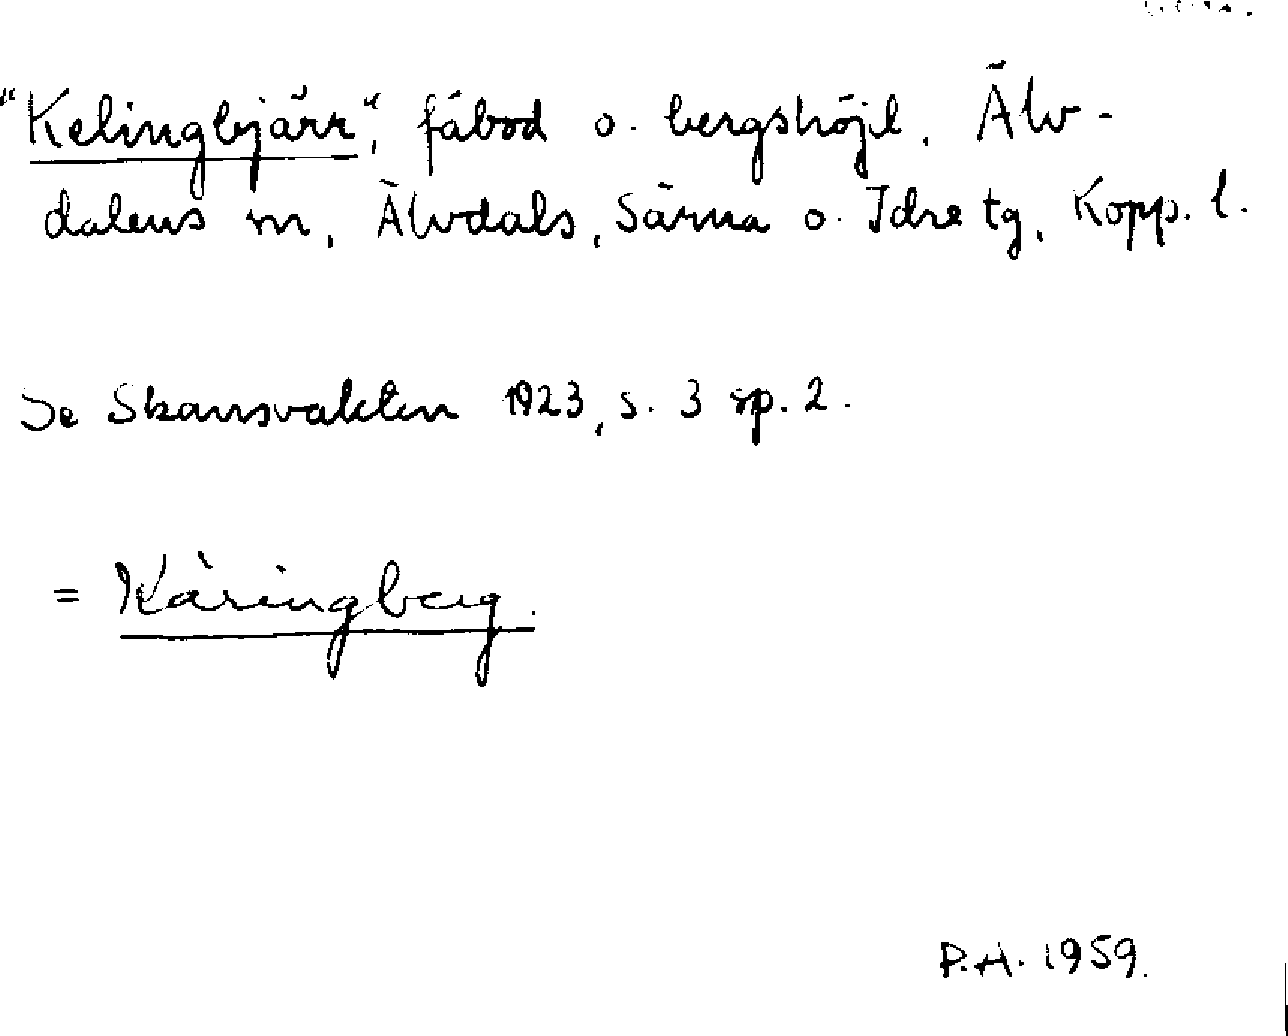 "Kelingbjärr", fäbod o. bergshöjd, Älv-
dalens sn, Älvdals, Särna o. Idre tg, Kopp. l.
Se Skansvakten 1923, s. 3 sp. 2.
= Käringberg.
P.H. 1959.